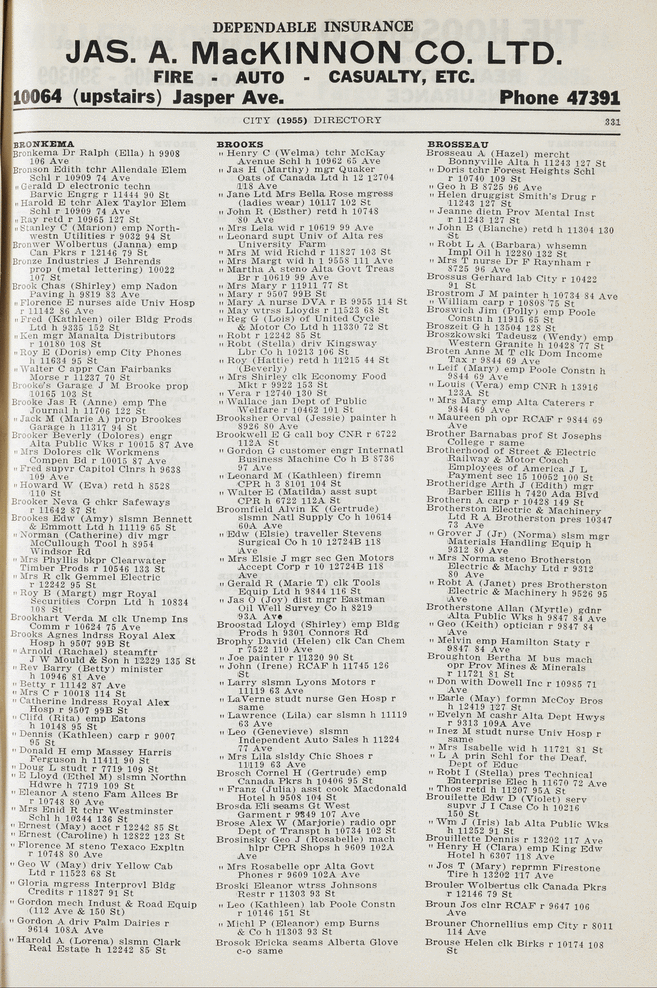 DEPENDABLE INSURANCE
JAS. A. MacKINNON CO. LTD.
FIRE - AUTO - CASUALTY, ETC.
10064 (upstairs) Jasper Ave. Phone 47391
CITY (1955) DIRECTORY 331
BRONKEMA
Bronkema Dr Ralph (Ella) h 9908
106 Ave
Bronson Edith tchr Allendale Elem
Schl r 10909 74 Ave
" Gerald D electronic techn
Barvic Engrg r 11444 90 St
" Harold E tchr Alex Taylor Elem
Schl r 10909 74 Ave
" Ray retd r 10965 127 St
" Stanley C (Marion) emp North-
westn Utilities r 9032 94 St
Bronwer Wolbertus (Janna) emp
Can Pkrs r 12146 79 St
Bronze Industries J Behrends
prop (metal lettering) 10022
107 St
Brook Chas (Shirley) emp Nadon
Paving h 9819 83 Ave
" Florence E nurses aide Univ Hosp
r 11142 86 Ave
" Fred (Kathleen) oiler Bldg Prods
Ltd h 9335 152 St
" Ken mgr Manalta Distributors
r 10180 108 St
" Roy E (Doris) emp City Phones
h 11634 95 St
" Walter C appr Can Fairbanks
Morse r 11237 70 St
Brooke's Garage J M Brooke prop
10165 103 St
Brooke Jas R (Anne) emp The
Journal h 11706 122 St
" Jack M (Marie A) prop Brookes
Garage h 11317 94 St
Brooker Beverly (Dolores) engr
Alta Public Wks r 10015 87 Ave
" Mrs Dolores clk Workmens
Compen Bd r 10015 87 Ave
" Fred supvr Capitol Clnrs h 9638
109 Ave
" Howard W (Eva) retd h 8528
110 St
Brooker Neva G chkr Safeways
r 11642 87 St
Brookes Edw (Amy) slsmn Bennett
& Emmott Ltd h 11119 65 St
" Norman (Catherine) div mgr
McCullough Tool h 8954
Windsor Rd
" Mrs Phyllis bkpr Clearwater
Timber Prods r 10546 133 St
" Mrs R clk Gemmel Electric
r 12242 95 St
" Roy B (Margt) mgr Royal
Securities Corpn Ltd h 10834
108 St
Brookhart Verda M clk Unemp Ins
Comm r 10624 75 Ave
Brooks Agnes lndrss Royal Alex
Hosp h 9507 99B St
" Arnold (Rachael) steamftr
J W Mould & Son h 12229 135 St
" Rev Barry (Betty) minister
h 10946 81 Ave
" Betty r 11142 87 Ave
" Mrs C r 10018 114 St
" Catherine lndress Royal Alex
Hosp r 9507 99B St
" Cliffd (Rita) emp Eatons
h 10148 95 St
" Dennis (Kathleen) carp r 9007
95 St
" Donald H emp Massey Harris
Ferguson h 11411 90 St
" Doug L studt r 7719 109 St
" E Lloyd (Ethel M) slsmn Northn
Hdwre h 7719 109 St
" Eleanor A steno Fam Allces Br
r 10748 80 Ave
" Mrs Enid H tchr Westminster
Schl h 10344 136 St
" Ernest (May) acct r 12242 85 St
" Ernest (Caroline) h 12822 123 St
" Florence M steno Texaco Expltn
r 10748 80 Ave
" Geo W (May) driv Yellow Cab
Ltd r 11523 68 St
" Gloria mgress Interprovl Bldg
Credits r 11827 91 St
" Gordon mech Indust & Road Equip
(112 Ave & 150 St)
" Gordon A driv Palm Dairies r
9614 108A Ave
" Harold A (Lorena) slsmn Clark
Real Estate h 12242 85 St
BROOKS
" Henry C (Welma) tchr McKay
Avenue Schl h 10962 65 Ave
" Jas H (Marthy) mgr Quaker
Oats of Canada Ltd h 12 12704
118 Ave
" Jane Ltd Mrs Bella Rose mgress
(ladies wear) 10117 102 St
" John R (Esther) retd h 10748
80 Ave
" Mrs Lela wid r 10619 99 Ave
" Leonard supt Univ of Alta res
University Farm
" Mrs M wid Richd r 11827 103 St
" Mrs Margt wid h 1 9558 111 Ave
" Martha A steno Alta Govt Treas
Br r 10619 99 Ave
" Mrs Mary r 11911 77 St
" Mary r 9507 99B St
" Mary A nurse DVA r B 9955 114 St
" May wtrss Lloyds r 11523 68 St
" Reg G (Lois) of United Cycle
& Motor Co Ltd h 11330 72 St
" Robt r 12242 85 St
" Robt (Stella) driv Kingsway
Lbr Co h 10213 106 St
" Roy (Hattie) retd h 11215 44 St
(Beverly)
" Mrs Shirley clk Economy Food
Mkt r 9922 153 St
" Vera r 12740 130 St
" Wallace jan Dept of Public
Welfare r 10462 101 St
Brooksher Orval (Jessie) painter h
8926 80 Ave
Brookwell E G call boy CNR r 6722
112A St
" Gordon G customer engr Internatl
Business Machine Co h B 8736
97 Ave
" Leonard M (Kathleen) firemn
CPR h 3 8101 104 St
" Walter E (Matilda) asst supt
CPR h 6722 112A St
Broomfield Alvin K (Gertrude)
slsmn Natl Supply Co h 10614
60A Ave
" Edw (Elsie) traveller Stevens
Surgical Co h 10 12724B 118
Ave
" Mrs Elsie J mgr sec Gen Motors
Accept Corp r 10 12724B 118
Ave
" Gerald R (Marie T) clk Tools
Equip Ltd h 9844 116 St
" Jas O (Joy) dist mgr Eastman
Oil Well Survey Co h 8219
93A Ave
Broostad Lloyd (Shirley) emp Bldg
Prods h 9301 Connors Rd
Brophy David (Helen) clk Can Chem
r 7522 110 Av
" Joe painter r 11320 90 St
" John (Irene) RCAF h 11745 126
St
" Larry slsmn Lyons Motors r
11119 63 Ave
" LaVerne studt nurse Gen Hosp r
same
" Lawrence (Lila) car slsmn h 11119
63 Ave
" Leo (Genevieve) slsmn
Independent Auto Sales h 11224
77 Ave
" Mrs Lila slsldy Chic Shoes r
11119 63 Ave
Brosch Cornel H (Gertrude) emp
Canada Pkrs h 10406 95 St
" Franz (Julia) asst cook Macdonald
Hotel h 9508 104 St
Brosda Eli seams Gt West
Garment r 9849 107 Ave
Brose Alex W (Marjorie) radio opr
Dept of Transpt h 10734 102 St
Brosinsky Geo J (Rosabelle) mach
hlpr CPR Shops h 9609 102A
Ave
" Mrs Rosabelle opr Alta Govt
Phones r 9609 102A Ave
Broski Eleanor wtrss Johnsons
Restr r 11303 93 St
" Leo (Kathleen) lab Poole Constn
r 10146 151 St
" Michl P (Eleanor) emp Burns
& Co h 11303 93 St
Brosok Ericka seams Alberta Glove
c-o same
BROSSEAU
Brosseau A (Hazel) mercht
Bonnyville Alta h 11243 127 St
" Doris tchr Forest Heights Schl
r 10740 109 St
" Geo h B 8725 96 Ave
" Helen druggist Smith's Drug r
11243 127 St
" Jeanne dietn Prov Mental Inst
r 11243 127 St
" John B (Blanche) retd h 11304 130
St
" Robt L A (Barbara) whsemn
Impl Oil h 12280 132 St
" Mrs T nurse Dr F Raynham r
8725 96 Ave
Brossus Gerhard lab City r 10422
91 St
Brostrom J M painter h 10734 84 Ave
" William carp r 10808 75 St
Broswich Jim (Polly) emp Poole
Constn h 11915 65 St
Broszeit G h 13504 128 St
Broszkowski Tadeusz (Wendy) emp
Western Granite h 10428 77 St
Broten Anne M T clk Dom Income
Tax r 9844 69 Ave
" Leif (Mary) emp Poole Constn h
9844 69 Ave
" Louis (Vera) emp CNR h 13916
123A St
" Mrs Mary emp Alta Caterers r
9844 69 Ave
" Maureen ph opr RCAF r 9844 69
Ave
Brother Barnabas prof St Josephs
College r same
Brotherhood of Street & Electric
Railway & Motor Coach
Employees of America J L
Payment sec 15 10052 100 St
Brotheridge Arth J (Edith) mgr
Barber Ellis h 7420 Ada Blvd
Brothern A carp r 10428 149 St
Brotherston Electric & Machinery
Ltd R A Brotherston pres 10347
73 Ave
" Grover J (Jr) (Norma) slsm mgr
Materials Handling Equip h
9312 80 Ave
" Mrs Norma steno Brotherston
Electric & Machy Ltd r 9312
80 Ave
" Robt A (Janet) pres Brotherston
Electric & Machinery h 9526 95
Ave
Brotherstone Allan (Myrtle) gdnr
Alta Public Wks h 9847 84 Ave
" Geo (Keith) optician r 9847 84
Ave
" Melvin emp Hamilton Staty r
9847 84 Ave
Broughton Bertha M bus mach
opr Prov Mines & Minerals
r 11721 81 St
" Don with Dowell Inc r 10985 71
Ave
" Earle (May) formn McCoy Bros
h 12419 127 St
" Evelyn M cashr Alta Dept Hwys
r 9313 109A Ave
" Inez M studt nurse Univ Hosp r
same
" Mrs Isabelle wid h 11721 81 St
" L A prin Schl for the Deaf,
Dept of Educ
" Robt I (Stella) pres Technical
Enterprise Elec h 11670 72 Ave
" Thos retd h 11207 95A St
Brouilette Edw D (Violet) serv
supvr J I Case Co h 10216
150 St
" Wm J (Iris) lab Alta Public Wks
h 11252 91 St
Brouillette Dennis r 13202 117 Ave
" Henry H (Clara) emp King Edw
Hotel h 6307 118 Ave
" Jos T (Mary) reprmn Firestone
Tire h 13202 117 Ave
Brouler Wolbertus clk Canada Pkrs
r 12146 79 St
Broun Jos clnr RCAF r 9647 106
Ave
Brouner Chornellius emp City r 8011
114 Ave
Brouse Helen clk Birks r 10174 108
St